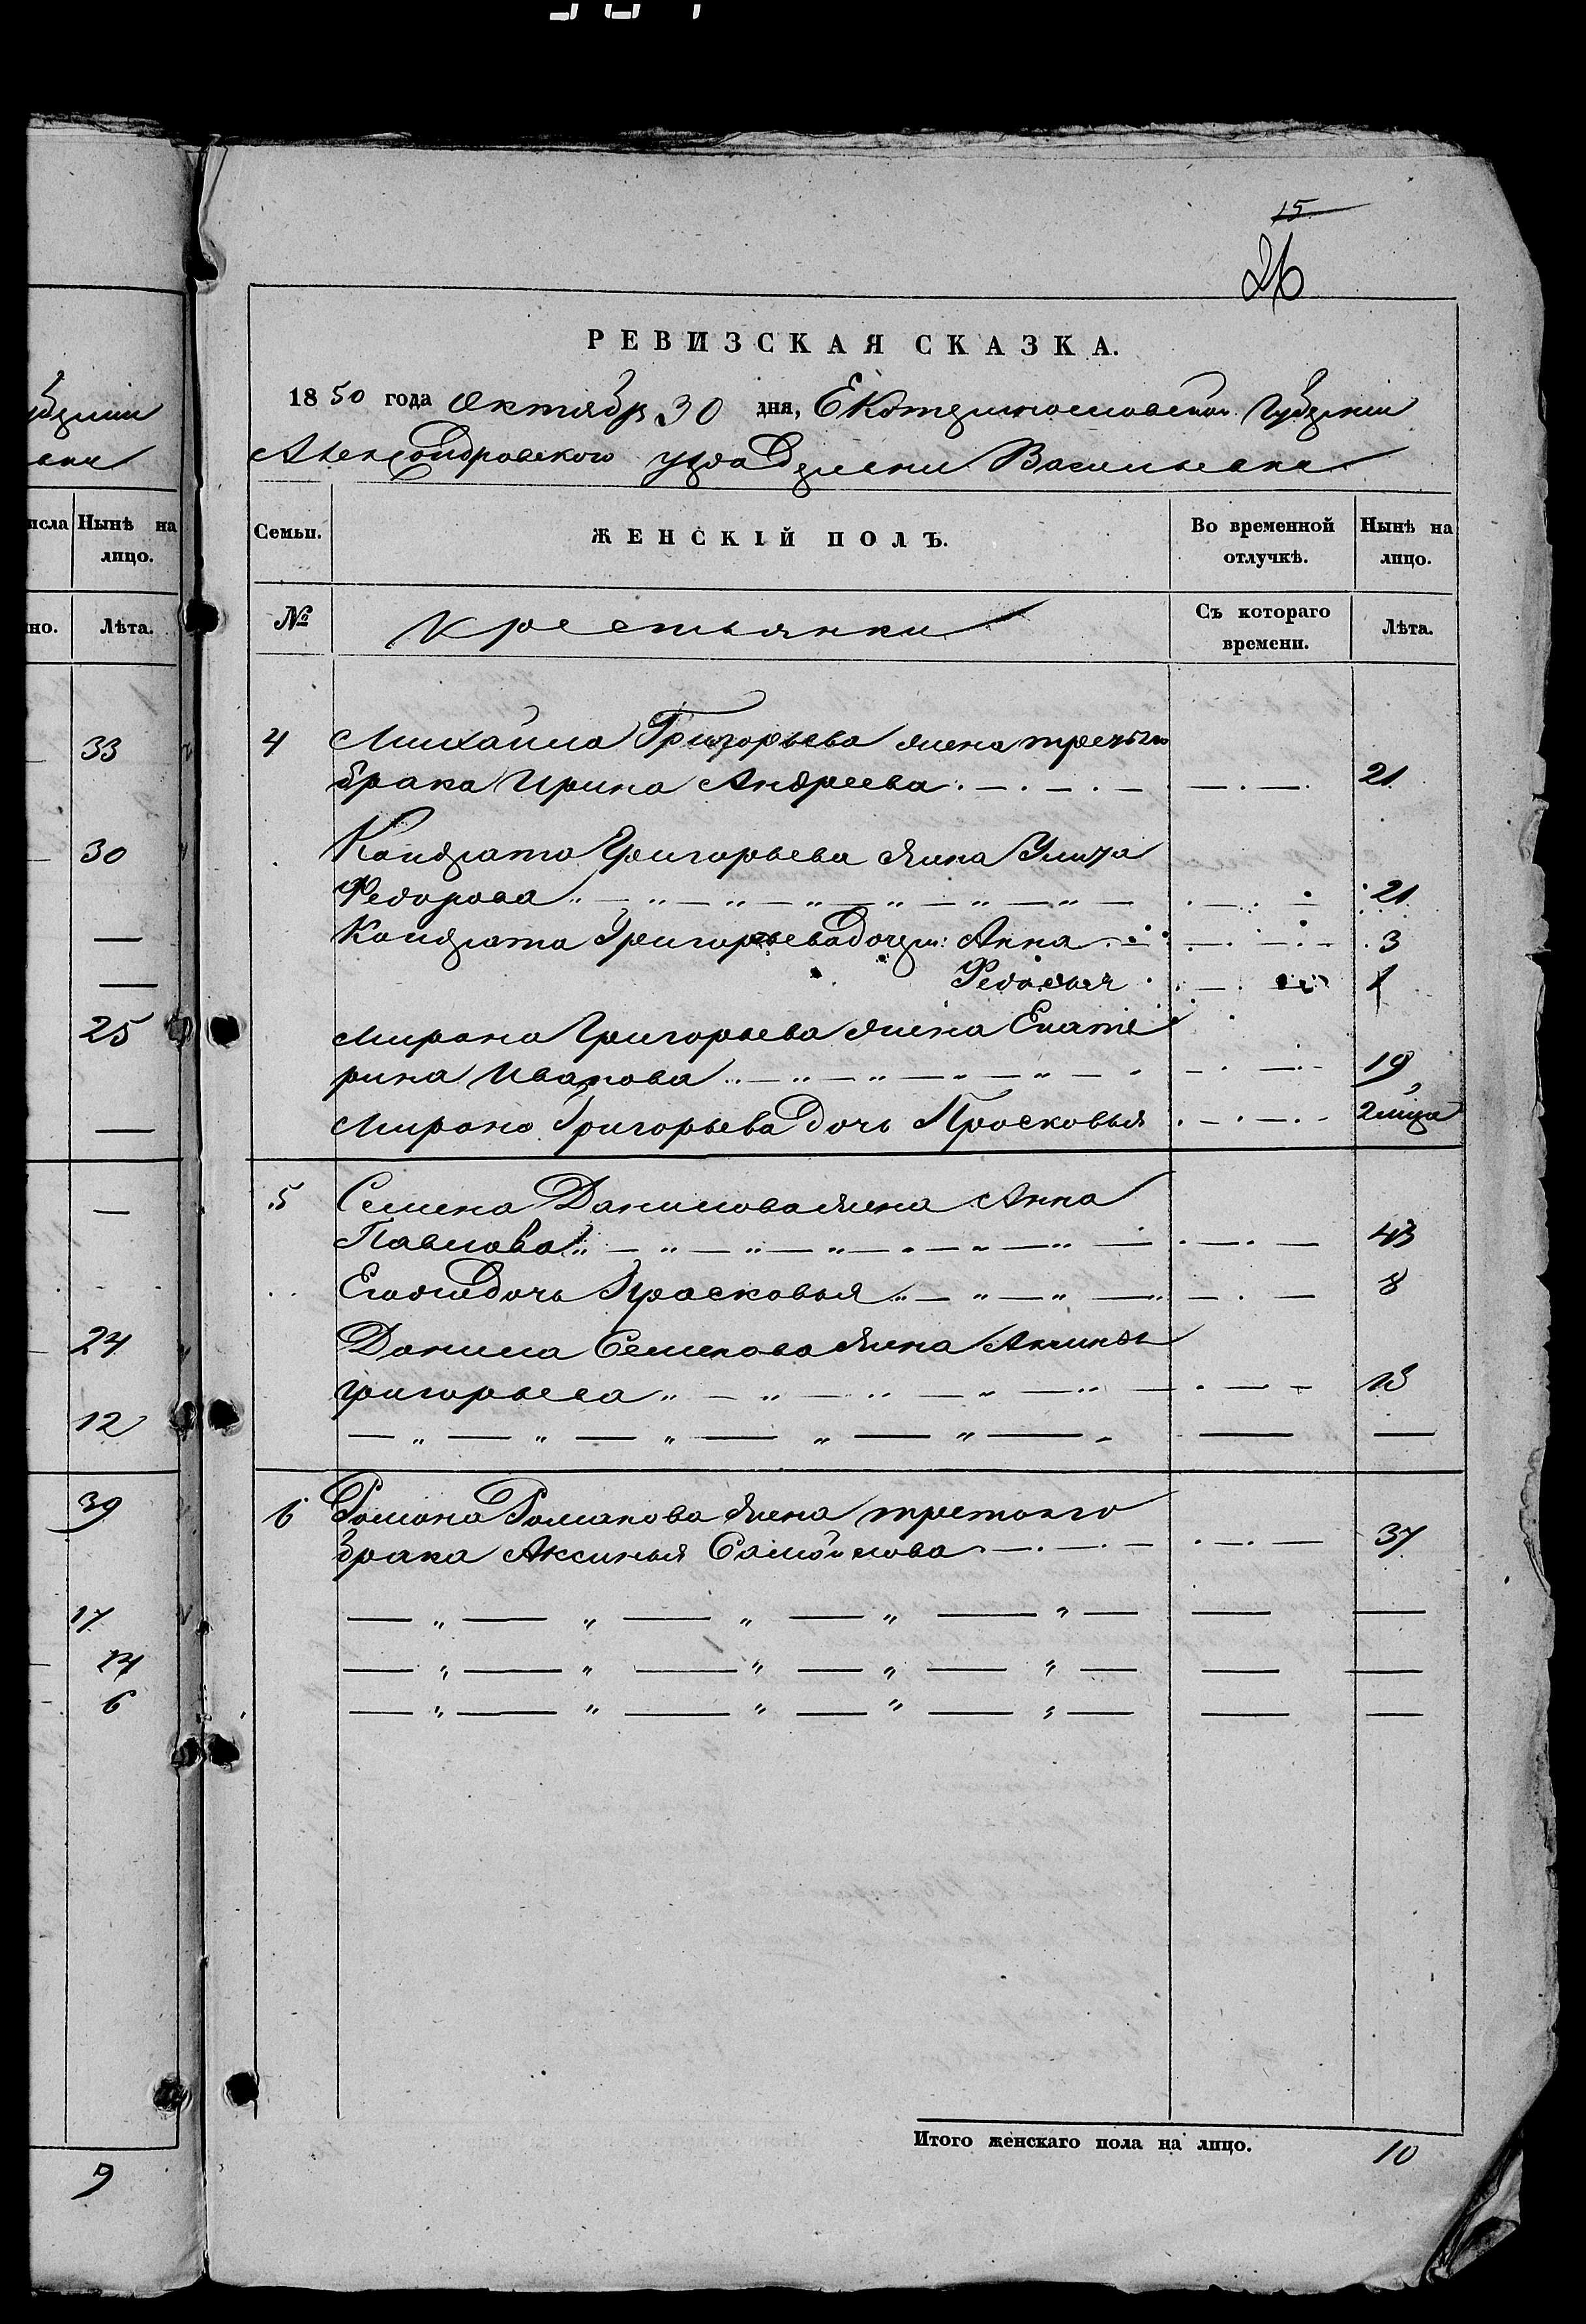 убернии
вки
исла Нынѣ на
лицо.
но. Лѣта.
33
30
—
—
25
—
—
24
12
39
17
14
6
9
15
26
РЕВИЗСКАЯ СКАЗКА.
1850 года октября 30 дня, Екатеринославской Губернии
Александровского уезда деревни Васильевки
Семьи. ЖЕНСКІЙ ПОЛЪ. Во временной Нынѣ на
отлучкѣ. лицо.
№ Крестьянки Съ котораго Лѣта.
времени.
4 Михайла Григорьева жена третьего
брака Ирина Андреева 21
Кондрата Григорьева жена
Федорова 21
Кондрата Григорьева дочери: Анна 3
Федосья 1
Мирона Григорьева жена Екате
рина Иванова 19
Мирона Григорьева дочь Просковья 2
5 Семена Данилова жена Анна
Павлова 43
Его же дочь Просковья 8
Данила Семенова жена
григорьева 18
6 Романа Романова жена третьего
брака Аксинья Самойлова 37
Итого женскаго пола на лицо. 10